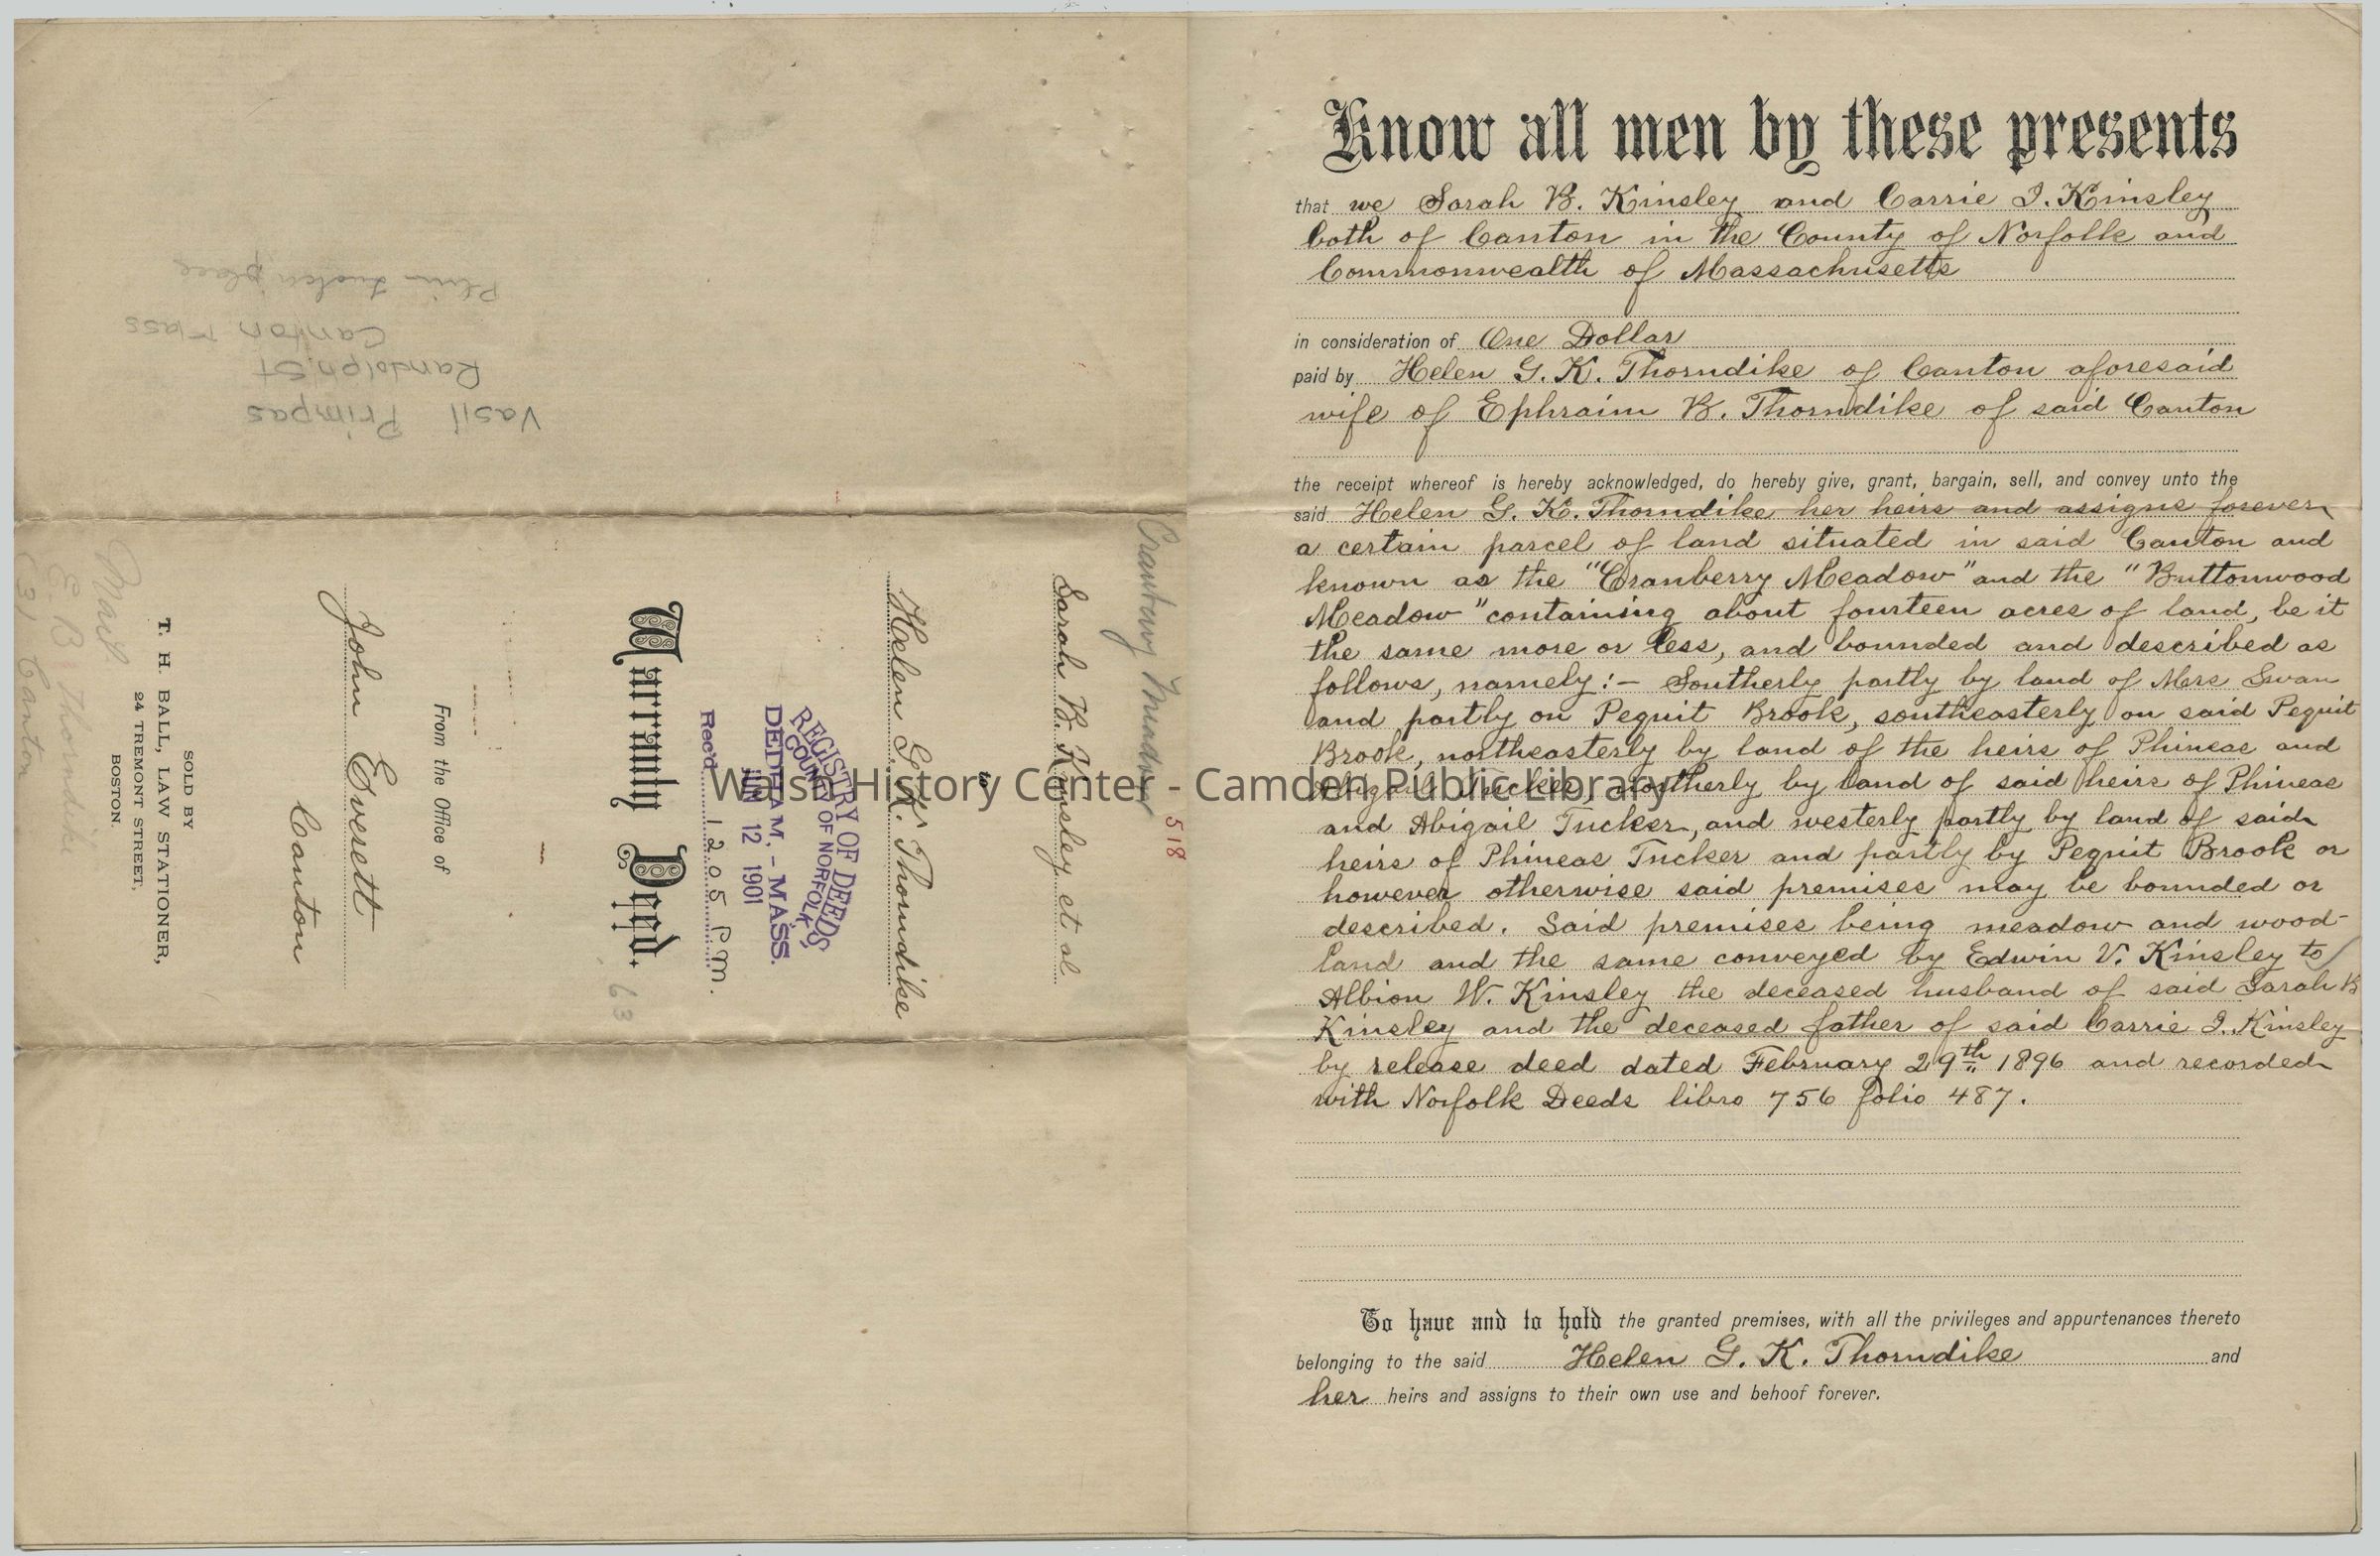 Know all men by these presents
that we Sarah B. Kinsley and Carrie I. Kinsley
both of Canton in the County of Norfolk and
Commonwealth of Massachusetts
in consideration of One Dollar
paid by Helen G. K. Thorndike of Canton aforesaid
wife of Ephraim B. Thorndike of said Canton
the receipt whereof is hereby acknowledged, do hereby give, grant, bargain, sell, and convey unto the
said Helen G. K. Thorndike her heirs and assigns forever
a certain parcel of land situated in said Canton and
known as the "Cranberry Meadow" and the "Buttonwood
Meadow" containing about fourteen acres of land, be it
the same more or less, and bounded and described as
follows, namely:- Southerly partly by land of Mrs Swan
and partly on Pequit Brook, southeasterly on said Pequit
Brook, northeasterly by land of the heirs of Phineas and
Abigail Tucker, northerly by land of said heirs of Phineas
and Abigail Tucker, and westerly partly by land of said
heirs of Phineas Tucker and partly by Pequit Brook or
however otherwise said premises may be bounded or
described. Said premises being meadow and wood-
land and the same conveyed by Edwin V. Kinsley to
Albion W. Kinsley the deceased husband of said Sarah B
Kinsley and the deceased father of said Carrie I. Kinsley
by release deed dated February 29th 1896 and recorded
with Norfolk Deeds libro 756 folio 487.
To have and to hold the granted premises, with all the privileges and appurtenances thereto
belonging to the said Helen G. K. Thorndike and
her heirs and assigns to their own use and behoof forever.
518
Sarah B. Kinsley et al.
to
Helen G. K. Thorndike
REGISTRY OF DEEDS,
COUNTY OF NORFOLK,
DEDHAM, - MASS.
JUN 12 1901
Rec'd 1205 P.M.
Warranty Deed.
63
From the Office of
John Everett
Canton
SOLD BY
T. H. BALL, LAW STATIONER,
24 TREMONT STREET,
BOSTON.
Mail
E. B. Thorndike
Canton
Vasil Primpas
Randolph St
Canton Mass
place
Walsh History Center - Camden Public Library